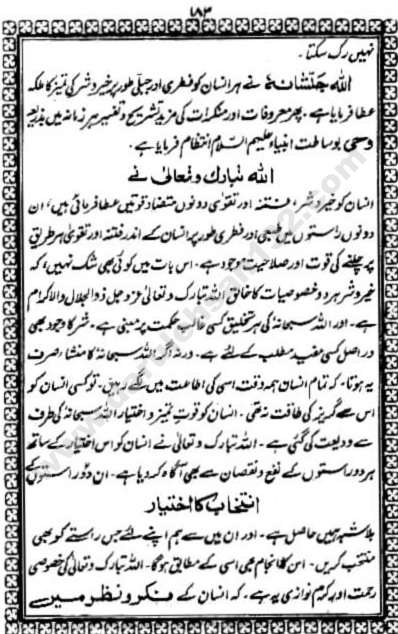 ۱۸۳
نہیں رک سکتا۔
اللہ جلّشانہٗ نے ہر انسان کو فطری اور جبلّی طور پر خیر و شر کی تمیز کا ملکہ
عطا فرمایا ہے۔ پھر معروفات اور منکرات کی مزید تشریح و تفسیر ہر زمانہ میں بذریعہ
وحی بوساطت انبیاء علیہم السلام انتظام فرمایا ہے۔
اللہ تبارک و تعالیٰ نے
انسان کو خیر و شر، فتنہ اور تقویٰ دونوں متضاد قوتیں عطا فرمائی ہیں، ان
دونوں راستوں میں طبعی اور فطری طور پر انسان کے اندر فتنہ اور تقویٰ ہر طریق
پر چلنے کی قوت اور صلاحیت موجود ہے۔ اس بات میں کوئی بھی شک نہیں، کہ
خیر و شر ہر دو خصوصیات کا خالق اللہ تبارک و تعالیٰ عز و جل ذوالجلال والاکرام
ہے۔ اور اللہ سبحانہٗ کی ہر تخلیق کسی غالب حکمت پر مبنی ہے۔ شر کا وجود بھی
در اصل کسی مفید مطلب کے لئے ہے۔ ورنہ اگر اللہ سبحانہٗ کا منشا صرف
یہ ہوتا۔ کہ تمام انسان ہمہ وقت اسی کی اطاعت میں لگے رہیں۔ تو کسی انسان کو
اس سے گریز کی طاقت نہ تھی۔ انسان کو قوتِ تمیز و اختیار اللہ سبحانہٗ کی طرف
سے ودیعت کی گئی ہے۔ اللہ تبارک و تعالیٰ نے انسان کو اس اختیار کے ساتھ
ہر دو راستوں کے نفع و نقصان سے بھی آگاہ کر دیا ہے۔ ان دو راستوں کے
انتخاب کا اختیار
بلا شبہ ہمیں حاصل ہے۔ اور ان میں سے ہم اپنے لئے جس راستے کو بھی
منتخب کریں۔ اس کا انجام بھی اسی کے مطابق ہوگا۔ اللہ تبارک و تعالیٰ کی خصوصی
رحمت اور کرم نوازی یہ ہے۔ کہ انسان کے فکر و نظر میں سے